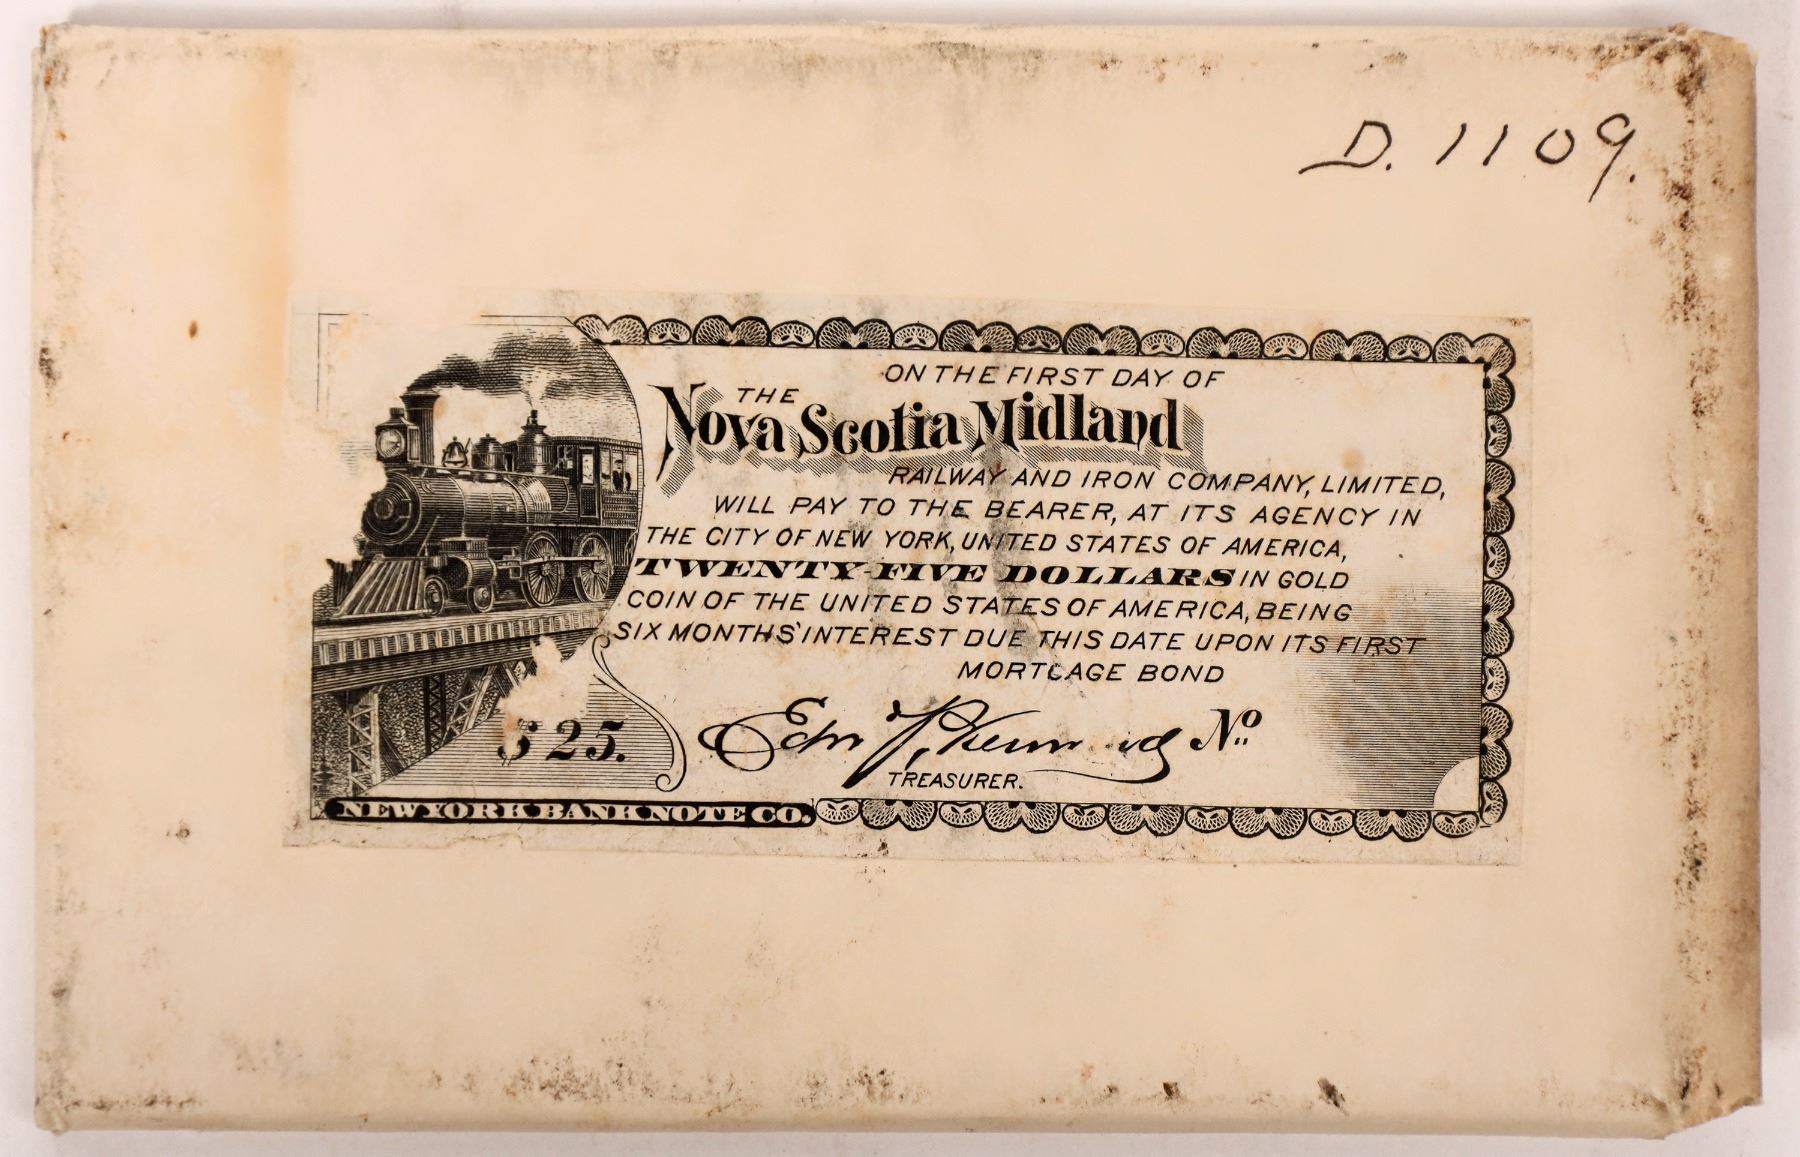 D. 1109.
ON THE FIRST DAY OF
THE
Nova Scotia Midland
RAILWAY AND IRON COMPANY, LIMITED,
WILL PAY TO THE BEARER, AT ITS AGENCY IN
THE CITY OF NEW YORK, UNITED STATES OF AMERICA,
TWENTY-FIVE DOLLARS IN GOLD
COIN OF THE UNITED STATES OF AMERICA, BEING
SIX MONTHS' INTEREST DUE THIS DATE UPON ITS FIRST
MORTGAGE BOND
$25.
Edw No.
TREASURER.
NEW YORK BANK NOTE CO.